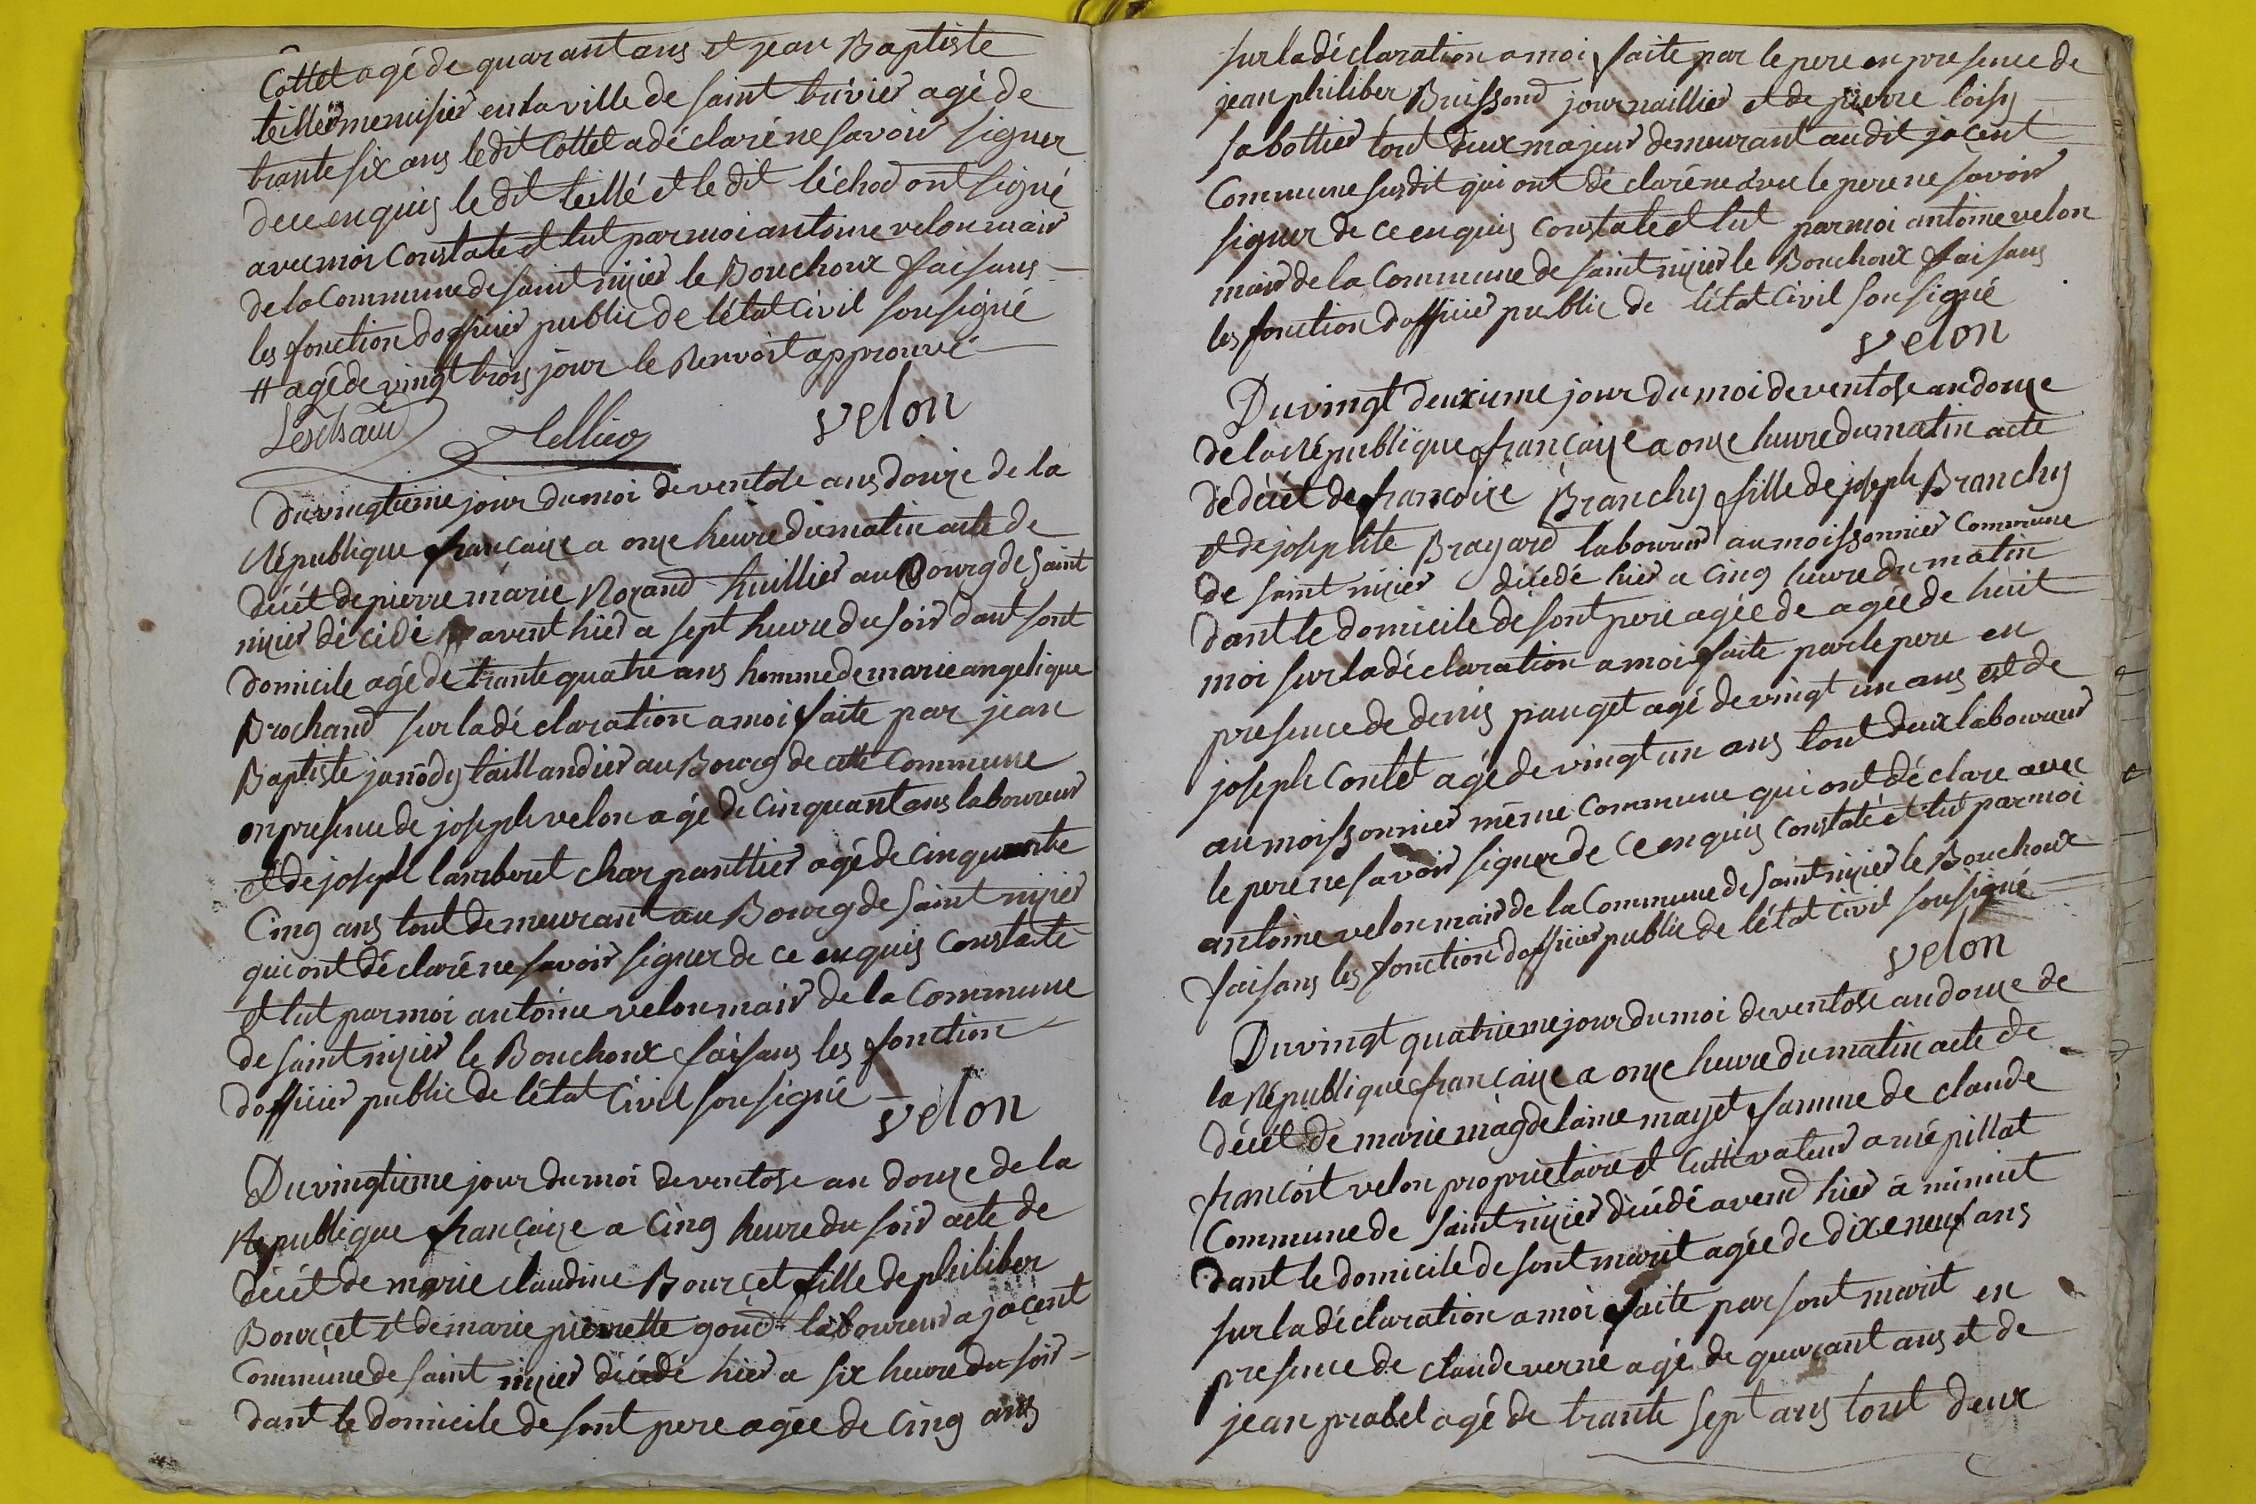 Cottet agé de quarant ans et jean Baptiste
teiller menuisier en la ville de saint trivier agé de
trante six ans ledit Cottet a déclaré ne savoir signer
de ce enquis le dit teillé et le dit léchod ont signé
avec moi Constate et lut par moi antoine velon mair
de la Commune de saint nizier le Bouchoux faisans
les fonction dofficier public de létat Civil sousigné
# agé de vingt trois jour le Renvoit approuvé
Leschaud tellier velon
du vingtieme jour du moi de ventose ans douze de la
République françaize a onze heure du matin acte de
décét de pierre marie Rozand huillier au Bourg de Saint
nizier décédé avent hier a sept heure du soir dant sont
domicile agé de trante quatre ans homme de marie angelique
Brochand sur la déclaration a moi faite par jean
Baptiste janody taillandier au Bourg de cette Commune
en presence de joseph velon agé de Cinquant ans laboureur
et de joseph lamberet charpanttier agé de Cinquante
Cinq ans tout demeurant au Bourg de Saint nizier
qui ont déclaré ne savoir signer de ce enquis Constaté
et lut par moi antoine velon mair de la Commune
de saint nizier le Bouchoux faisans les fonction
dofficier public de létat Civil sousigné
velon
Du vingtieme jour du moi de ventose an douze de la
République françaize a Cinq heure du soir acte de
décét de marie claudine Bourcet fille de philiber
Bourcet et de marie pierrette goud laboureur a jacent
Commune de saint nizier décédé hier a six heure du soir
dant le domicile de sont pere agée de Cinq ans
sur la déclaration a moi faite par le pere en presence de
jean philiber Buissond journaillier et de pierre loisy
sabottier tout deux majeur demeurant audit jacent
Commune susdit qui ont déclaré avec le pere ne savoir
signer de ce enquis Constate et lut par moi antoine velon
mair de la Commune de saint nizier le Bouchoux faisans
les fonction dofficier public de létat Civil sousigné
velon
Du vingt deuxieme jour du moi de ventose an douze
de la République françaize a onze heure du matin acte
de décét de francoize Branchy fille de joseph Branchy
et de josephte Brayard laboureur au moissonnier Commune
de saint nizier décédé hier a Cinq heure du matin
dant le domicile de sont pere agée de agée de huit
moi sur la déclaration a moi faite par le pere en
presence de denis pauget agé de vingt un ans est de
joseph Contet agé de vingt un ans tout deux laboureur
au moissonnier même Commune qui ont déclare avec
le pere ne savoir signer de ce enquis Constaté et lut par moi
antoine velon mair de la Commune de saint nizier le Bouchoux
faisans les fonction dofficier public de létat Civil sousigné
velon
Du vingt quatrieme jour du moi de ventose an douze de
la République françaize a onze heure du matin acte de
décét de marie magdelaine mayet famme de claude
francoit velon proprietaire et Cultivateur a népillat
Commune de saint nizier décédé avend hier à minuit
dant le domicile de sont marit agée de dixeneuf ans
sur la déclaration a moi faite par sont marit en
presence de claude verne agé de quarant ans et de
jean prabel agé de trante sept ans tout deux